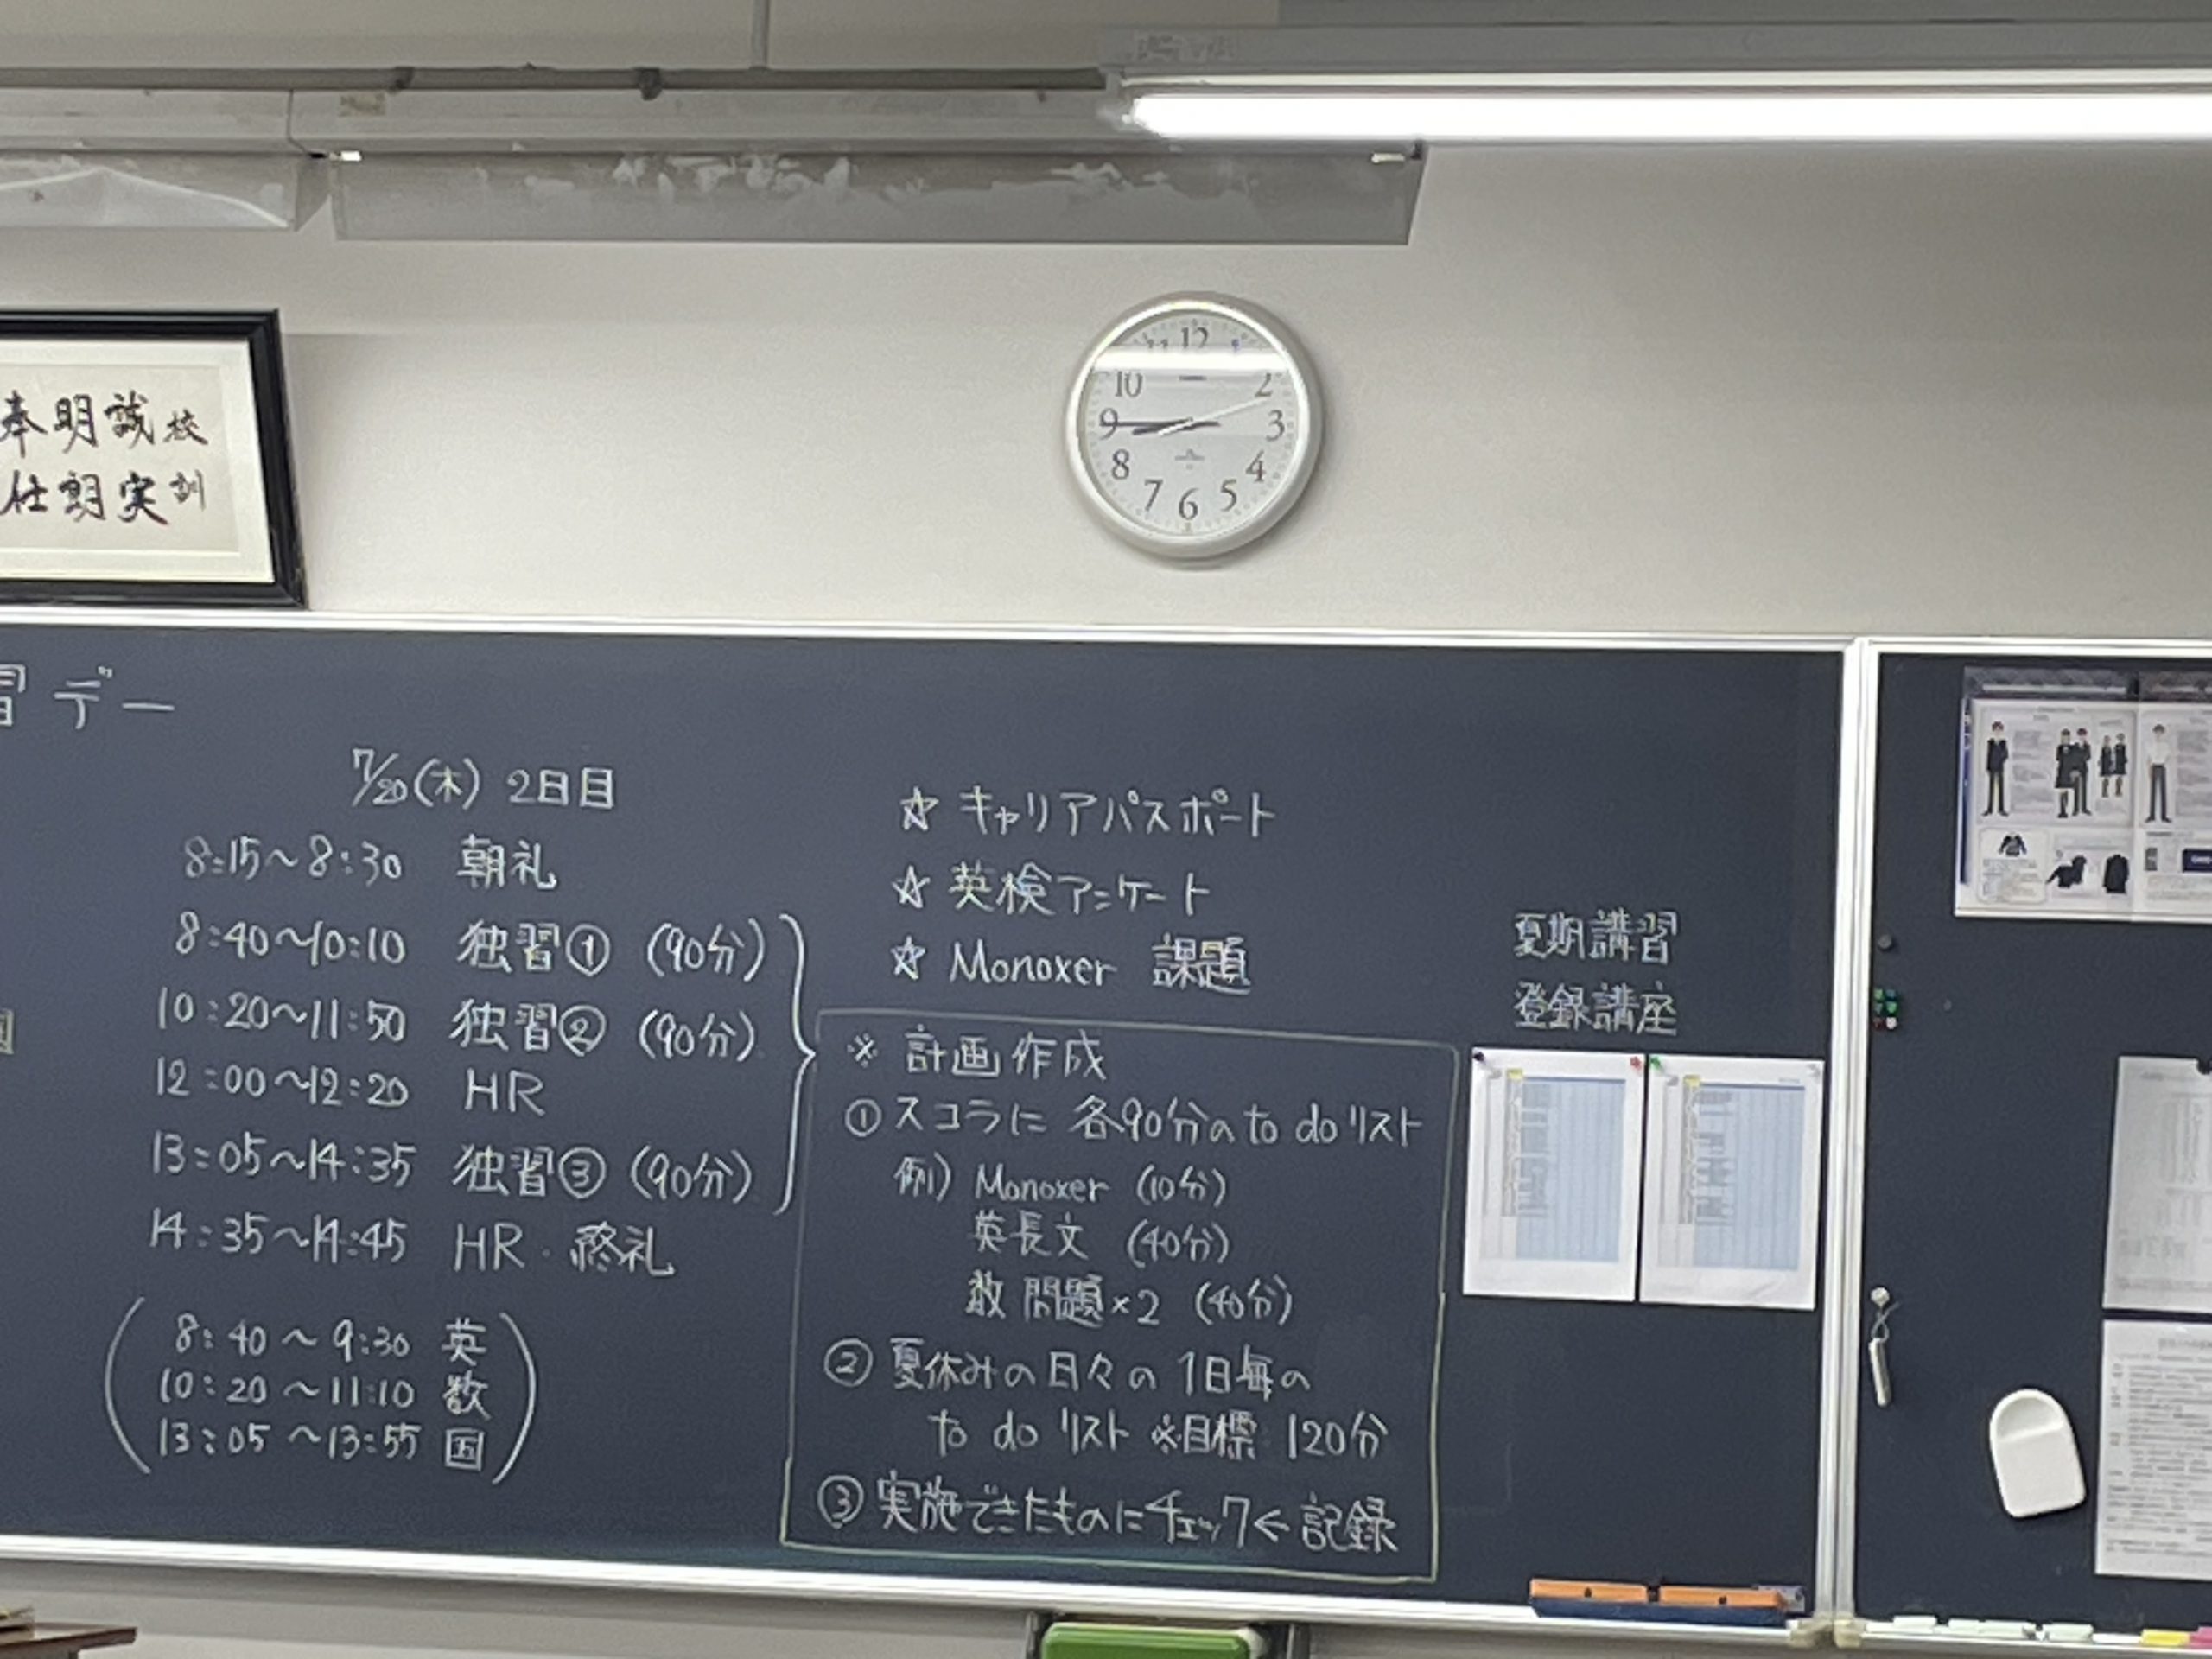 校訓
誠実
明朗
奉仕
12
2
3
4
5
6
7
8
9
10
習デー
7/20(木) 2日目
8:15〜8:30 朝礼
8:40〜10:10 独習① (90分)
10:20〜11:50 独習② (90分)
12:00〜12:20 HR
13:05〜14:35 独習③ (90分)
14:35〜14:45 HR・終礼
8:40〜9:30 英
10:20〜11:10 数
13:05〜13:55 国
☆ キャリアパスポート
☆ 英検アンケート
☆ Monoxer 課題
※ 計画作成
① スコラに 各90分の to do リスト
例) Monoxer (10分)
英長文 (40分)
数 問題×2 (40分)
② 夏休みの日々の 1日毎の
to do リスト ※目標 120分
③ 実施できたものにチェック← 記録
夏期講習
登録講座